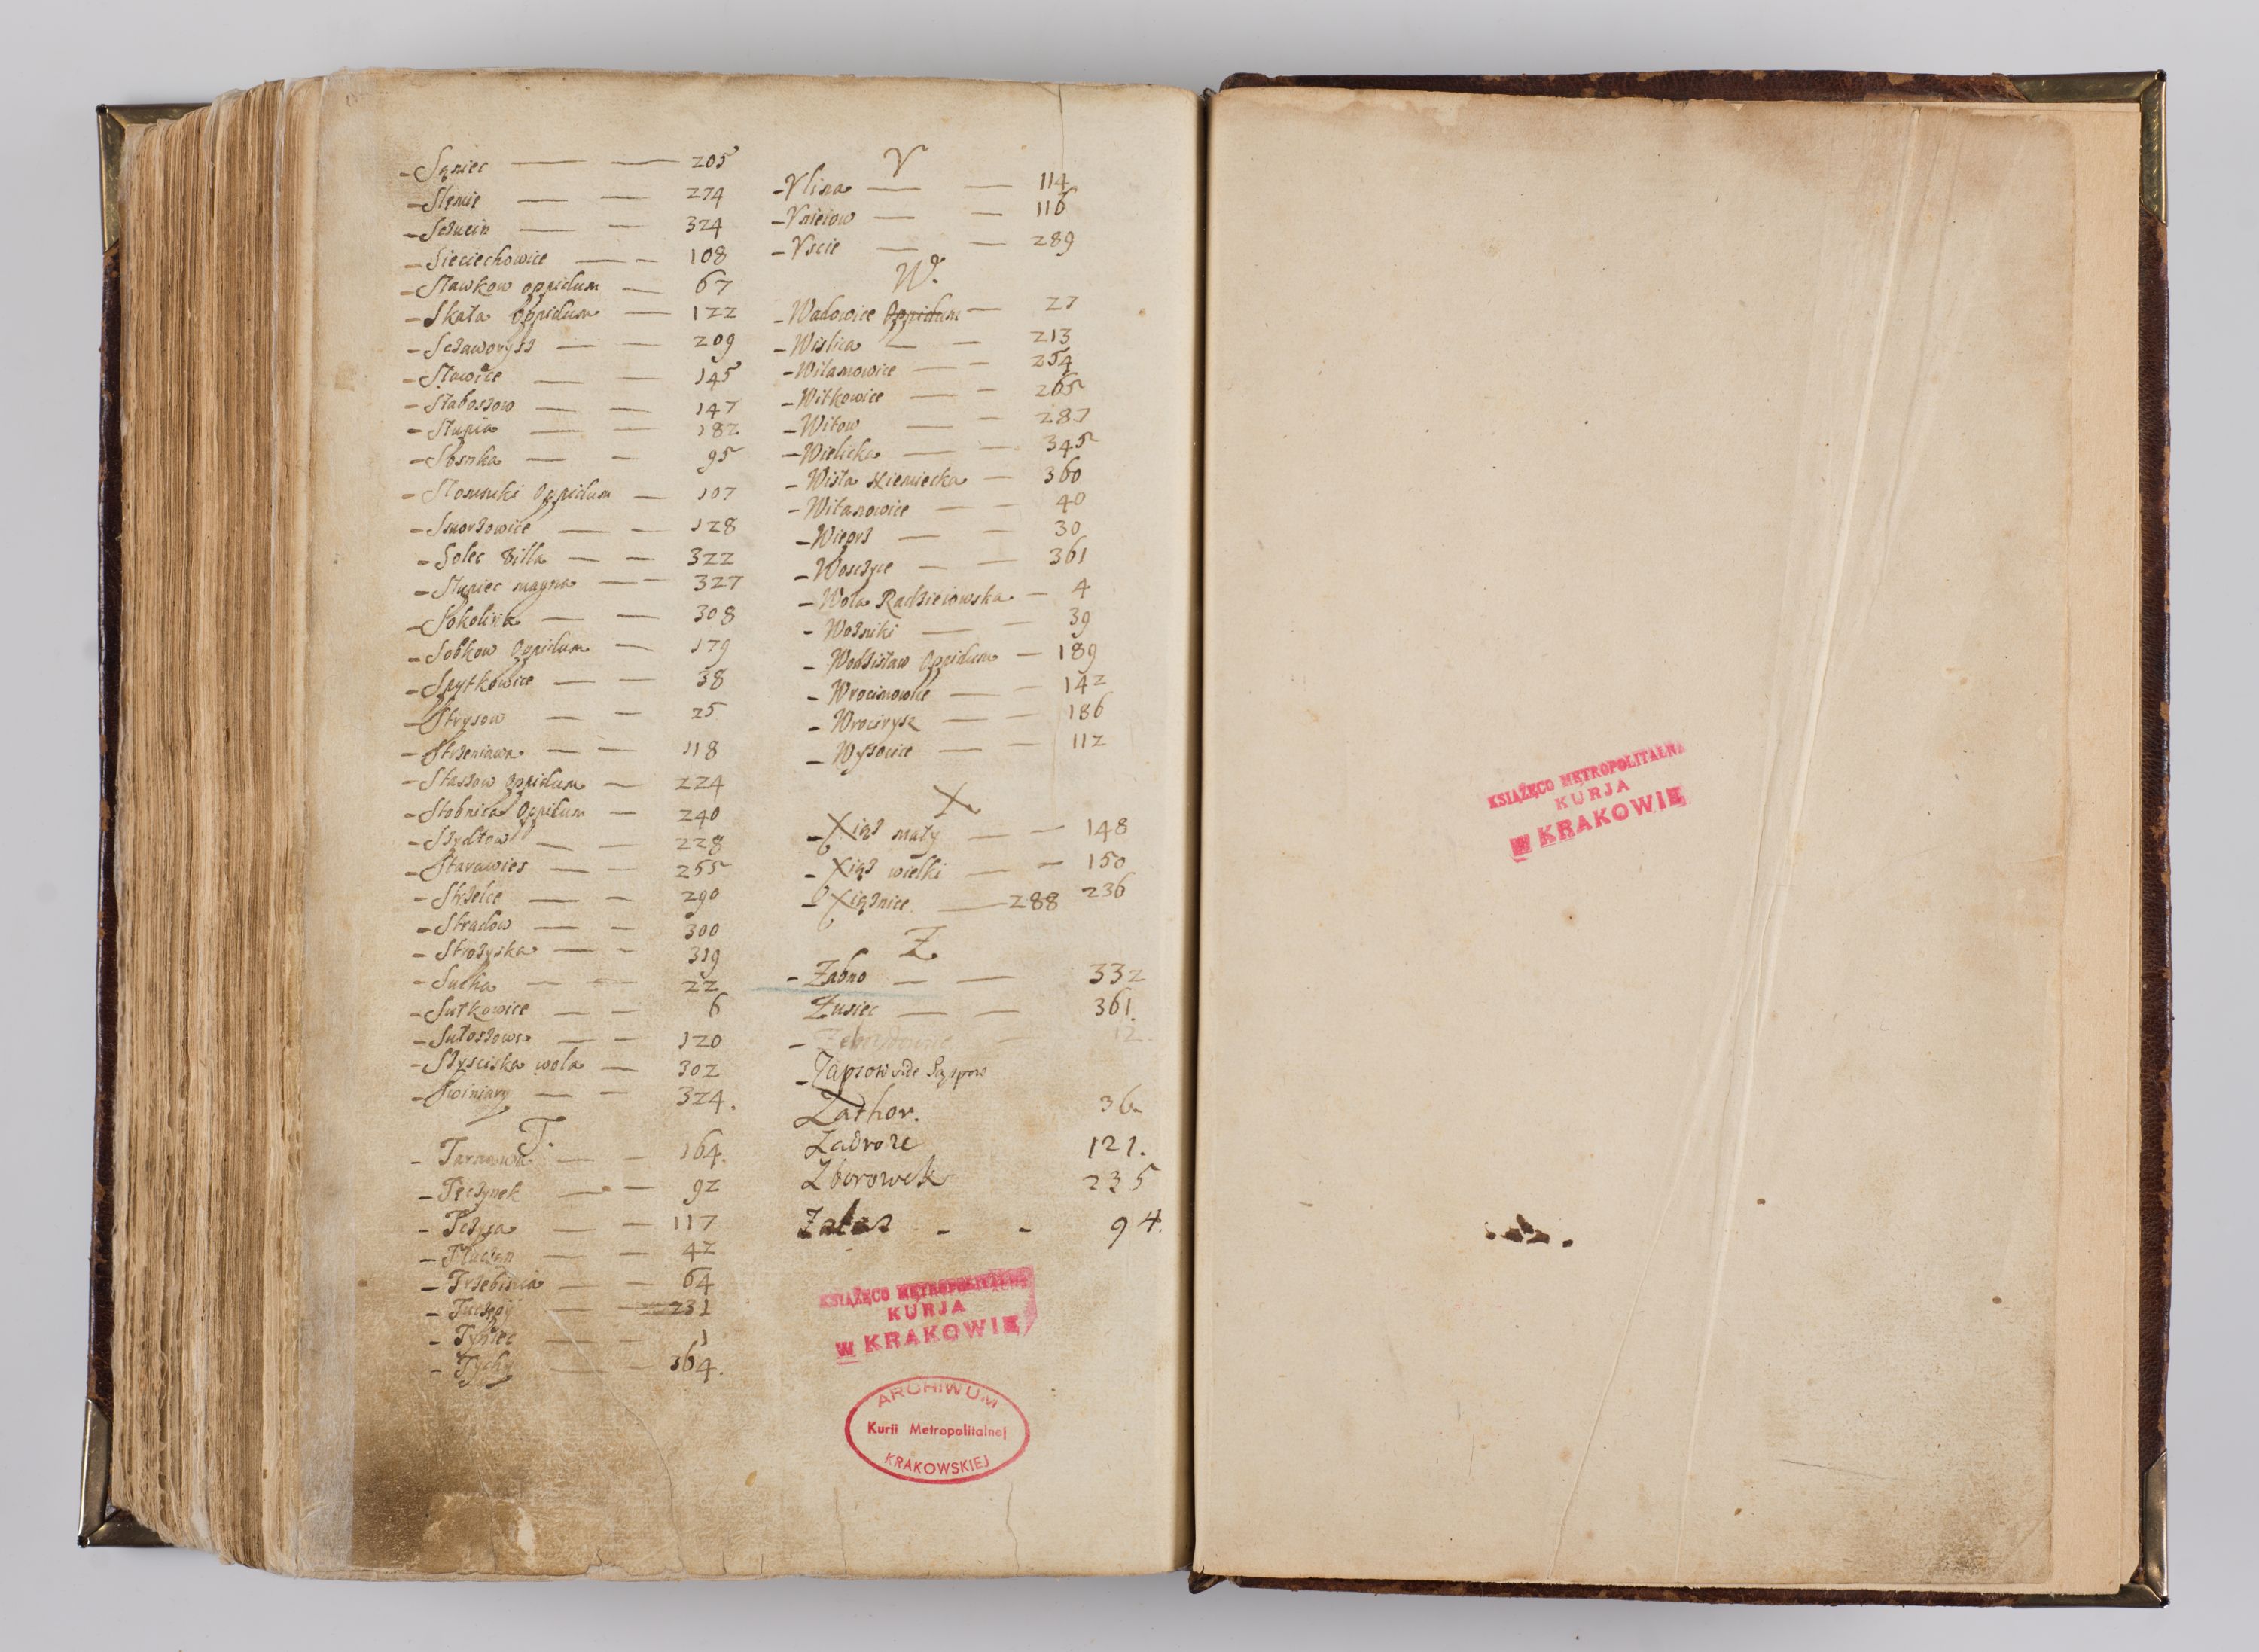 - Sąniec 205
- Slęmie 274
- Sczucin 324
- Sieciechowice 108
- Sławkow oppidum 67
- Skała Oppidum 122
- Sczaworysz 209
- Sławice 145
- Słaboszow 147
- Słupia 182
- 95
- Słomniki Oppidum 107
- 128
- Solec Villa 322
- Słupiec magna 327
- Sokolina 308
- Sobkow Oppidum 179
- Spytkowice 38
- Stryszow 25
- Strzeniawa 118
- Staszow Oppidum 224
- Stobnica Oppidum 240
- Szydłow 228
- Starawies 255
- 290
- Stradow 300
- Strożyska 319
- Sucha 22
- Sułkowice 6
- Sułoszowa 120
- wola 302
- Swiniary 324.
T.
- Tarnawa 164.
- Tęczynek 92
- Tczyca 117
- 42
- Trzebinia 64
- Tuczępy 231
- Tyniec 1
- Tychy 364.
V
- Vlina 114
- Vnieiow 116
- Vscie 289
W.
- Wadowice Oppidum 27
- Wislica 213
- Wilamowice 254
- Witkowice 265
- Witow 287
- Wielicka 345
- Wisła Niemiecka 360
- Witanowice 40
- Wieprz 30
- Woszczyce 361
- Wola Radzieiowska 4
- Wozniki 39
- Wodzisław Oppidum 189
- Wrocimowice 142
- Wrocirysz 186
- Wysocice 112
X
- Xiąz mały 148
- Xiąz wielki 150
- Xiąznice 288 236
Z
- Zabno 332
Zusiec 361.
- 12.
- Zapsow vide
Zathor. 36
Zadroze 121.
Zborowek 235
Zalas - - 94.
KSIĄŻĘCO METROPOLITALNA
KURJA
W KRAKOWIE
ARCHIWUM
Kurii Metropolitalnej
KRAKOWSKIEJ
KSIĄŻĘCO METROPOLITALNA
KURJA
W KRAKOWIE